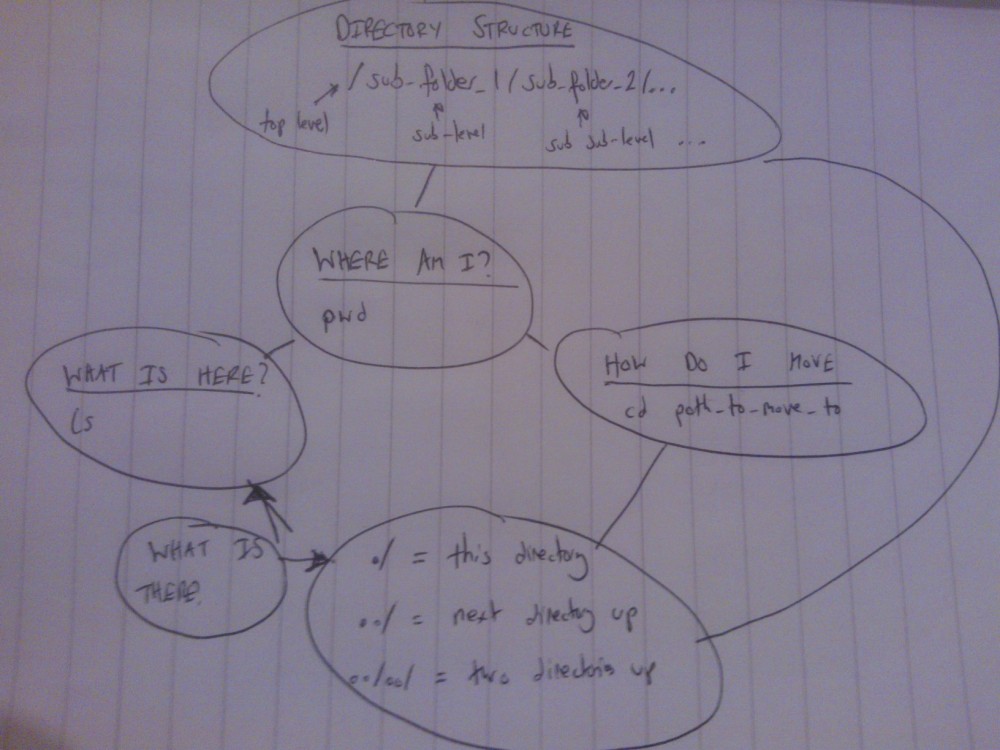 DIRECTORY STRUCTURE
/sub_folder_1/sub_folder_2/...
top level
sub-level
sub sub-level ...
WHERE AM I?
pwd
WHAT IS HERE?
ls
HOW DO I MOVE
cd path_to_move_to
WHAT IS
THERE?
./ = this directory
../ = next directory up
../../ = two directories up